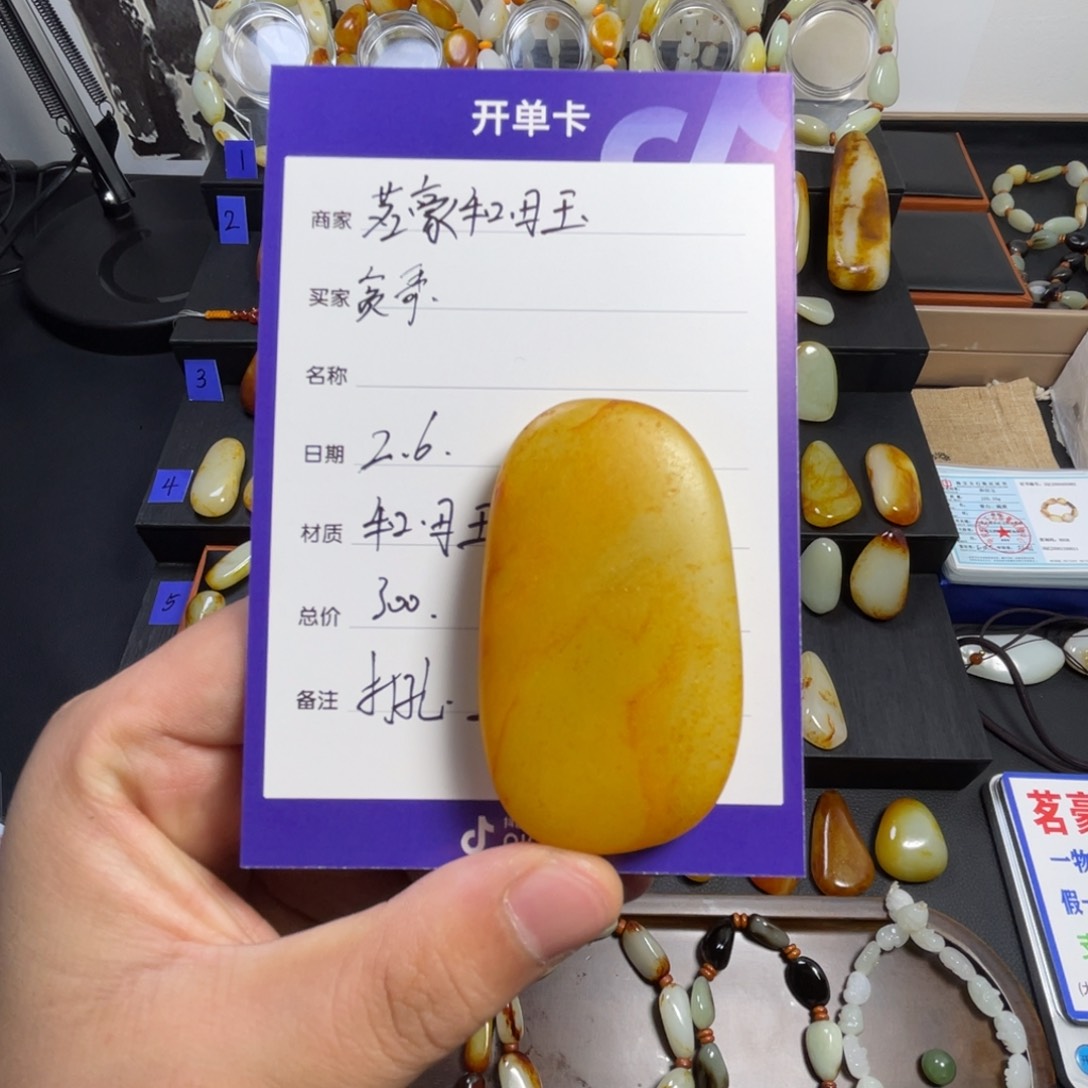 开单卡
商家 茗豪和田玉
买家 灸哥.
名称
日期 2.6.
材质 和田玉
总价 300.
备注 打孔.
1
2
3
4
5
茗豪
一物
假一